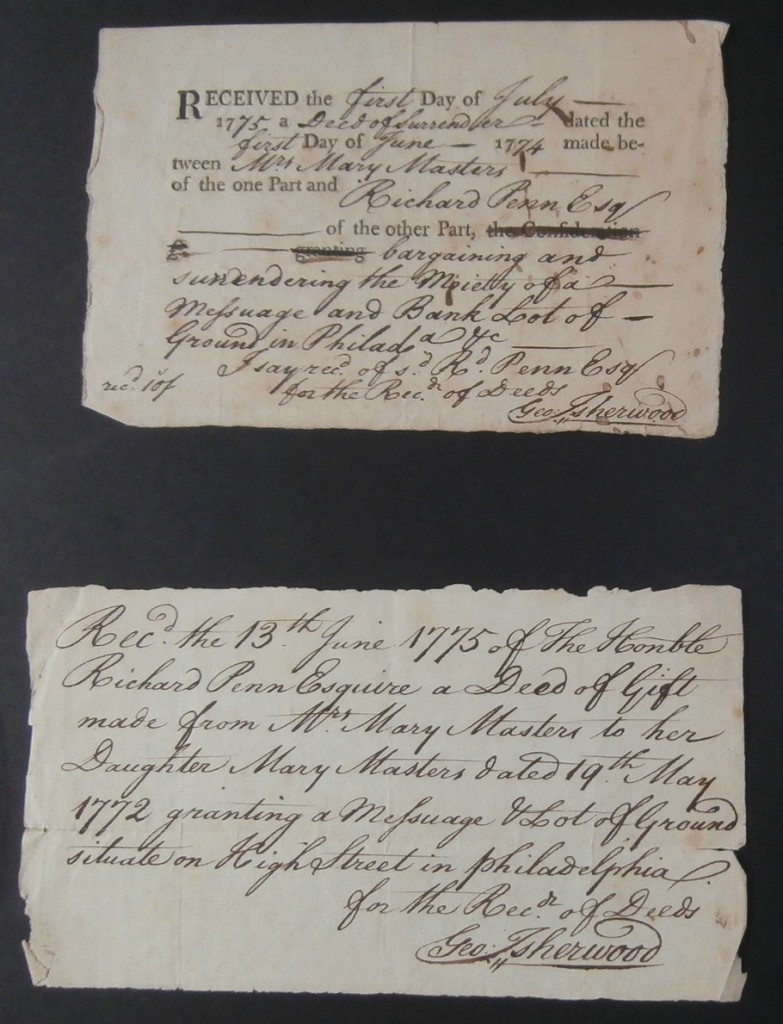 RECEIVED the first Day of July
1775 a Deed of Surrender dated the
first Day of June 1774 made be-
tween Mrs Mary Masters
of the one Part and Richard Penn Esqr
of the other Part, the Consideration
granting bargaining and
surrendering the Moiety of a
Messuage and Bank Lot of
Ground in Philada &c
I say recd. of sd. Rd. Penn Esqr
recd. 10s/
for the Recdr. of Deeds
Geo. Isherwood
Recd. the 13th June 1775 of The Honble
Richard Penn Esquire a Deed of Gift
made from Mrs. Mary Masters to her
Daughter Mary Masters dated 19th. May
1772 granting a Messuage & Lot of Ground
situate on High Street in philadelphia.
for the Recdr. of Deeds
Geo: Isherwood